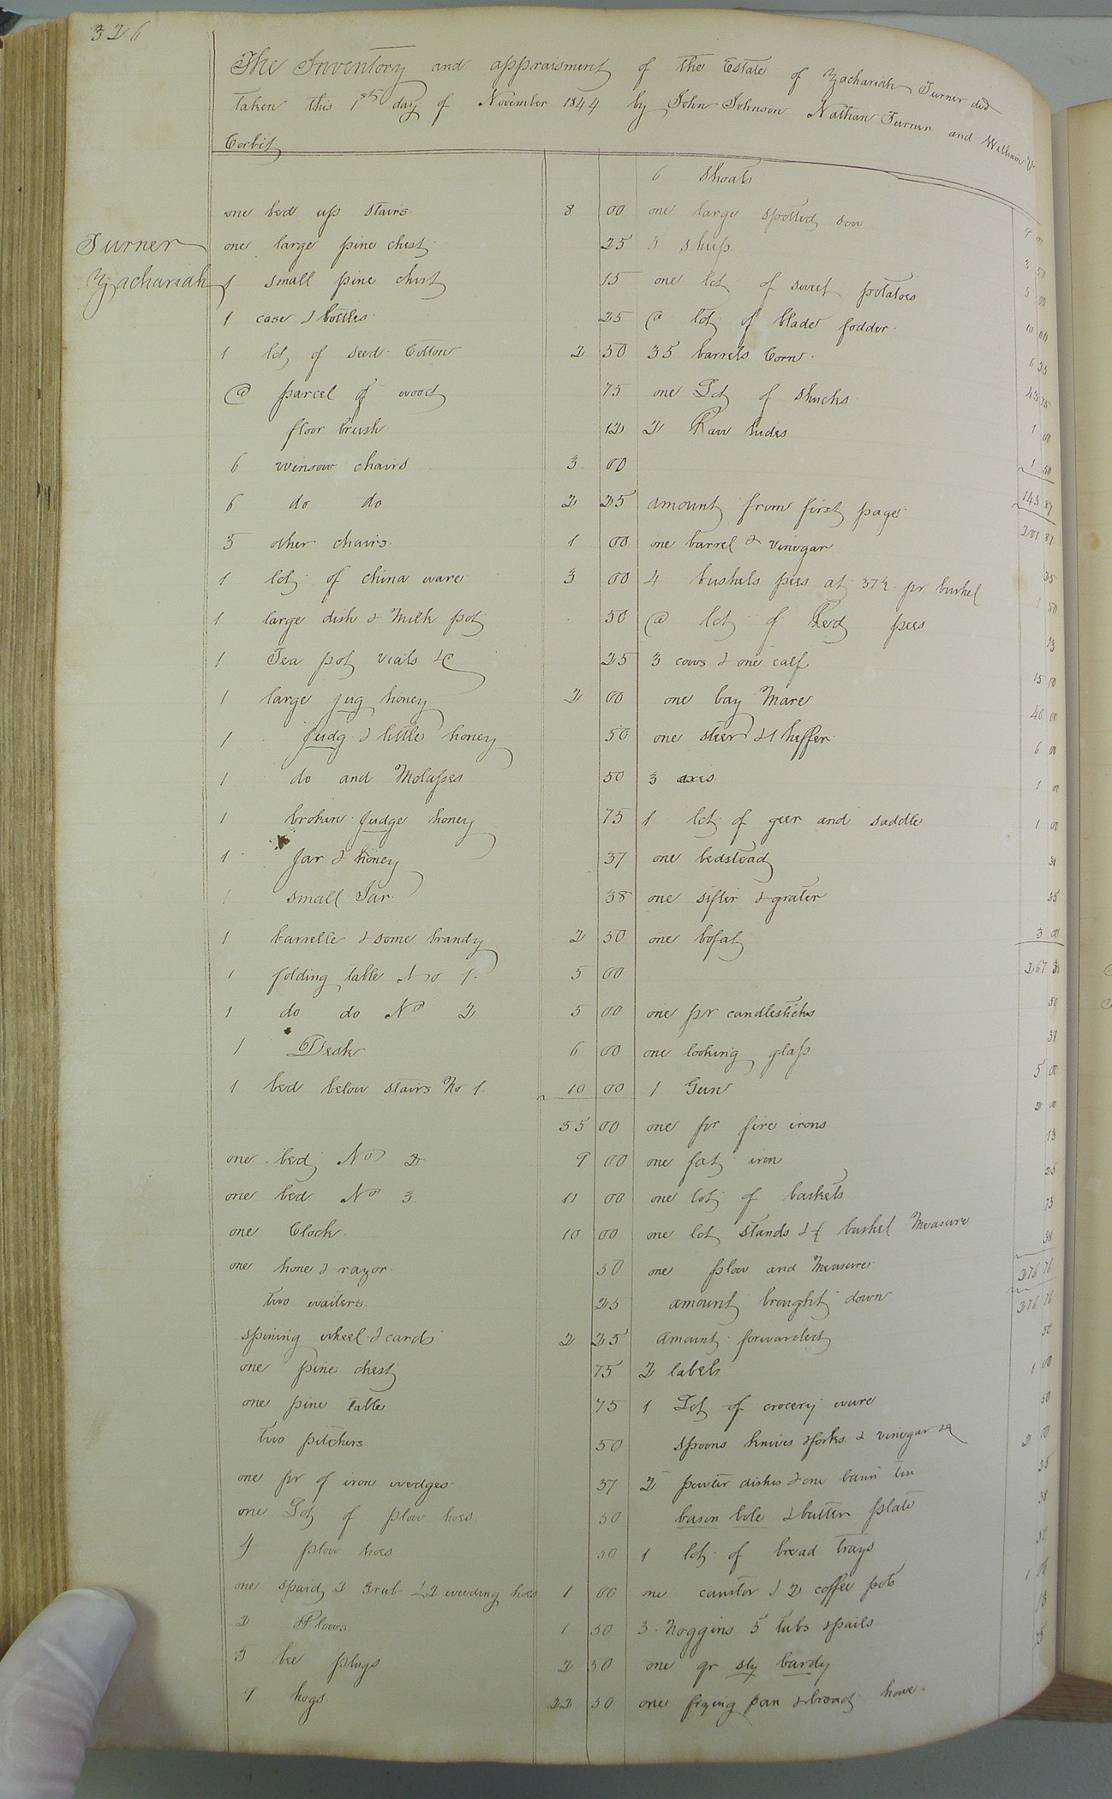 326
The Inventory and appraisment of the Estate of Zachariah Turner decd
taken this 1st day of November 1844 by John Johnson Nathan Turner and William V.
Corbit
Turner
Zachariah
one bed up stairs 8 00
one large pine chest 25
1 small pine chest 15
1 case & bottles 25
1 lot of seed Cotton 2 50
@ parcel of wood 75
floor brush 12
6 winsow chairs 3 00
6 do do 2 25
3 other chairs 1 00
1 lot of china ware 3 00
1 large dish & Milk pot 50
1 Tea pot vials &c 25
1 large jug honey 2 00
1 Judg & little honey 50
1 do and Molasses 50
1 broken Judge honey 75
1 Jar & honey 37
1 small Jar 38
1 barrelle & some brandy 2 50
1 folding table No 1 5 00
1 do do No 2 5 00
1 Desk 6 00
1 bed below stairs No 1 10 00
55 00
one bed No 2 9 00
one bed No 3 11 00
one Clock 10 00
one hone & razor 50
two waiters 25
spining wheel & cards 2 25
one pine chest 75
one pine table 75
two pitchers 50
one pr of iron wedges 37
one Lot of plow hoes 50
4 plow hoes 50
one spaid 2 Grub & 2 weeding hoes 1 00
2 Plows 1 50
5 bee plugs 2 50
9 hogs 22 50
6 shoats 9 00
one large spotted sow 3 50
5 ship 5 00
one lot of sweet potatoes 10 00
@ lot of blade fodder 6 25
35 barrels Corn 43 75
one Lot of shucks 1 00
2 Raw hides 1 50
143 87
amount from first page 201 87
one barrel & vinegar 25
4 bushels pees at 37½ pr bushel 1 50
@ lot of Red pees 13
3 cows & one calf 15 00
one bay Mare 40 00
one steer & 1 heffer 6 00
3 axis 1 00
1 lot of geer and saddle 1 00
one bedstead 50
one sifter & grater
one bofat 3 00
267
one pr candlesticks 50
one looking glass 38
1 Gun 5 00
one pr fire irons 2 00
one fat iron 13
one lot of baskets 25
one lot stands & ½ bushel Measure 75
one plow and Measure 50
376 76
amount brought down 376 76
amount forwarded
2 labels 50
1 Lot of crocery ware 1 00
spoons knives & forks & vinegar &c 50
2 pewter dishes & one basin tin 2 00
bason bole & butter plate 25
1 lot of bread trays 38
one canstor & 2 coffee pots
3 Noggins 5 tubs & pails
one gr sly bardy
one frying pan & broad howe